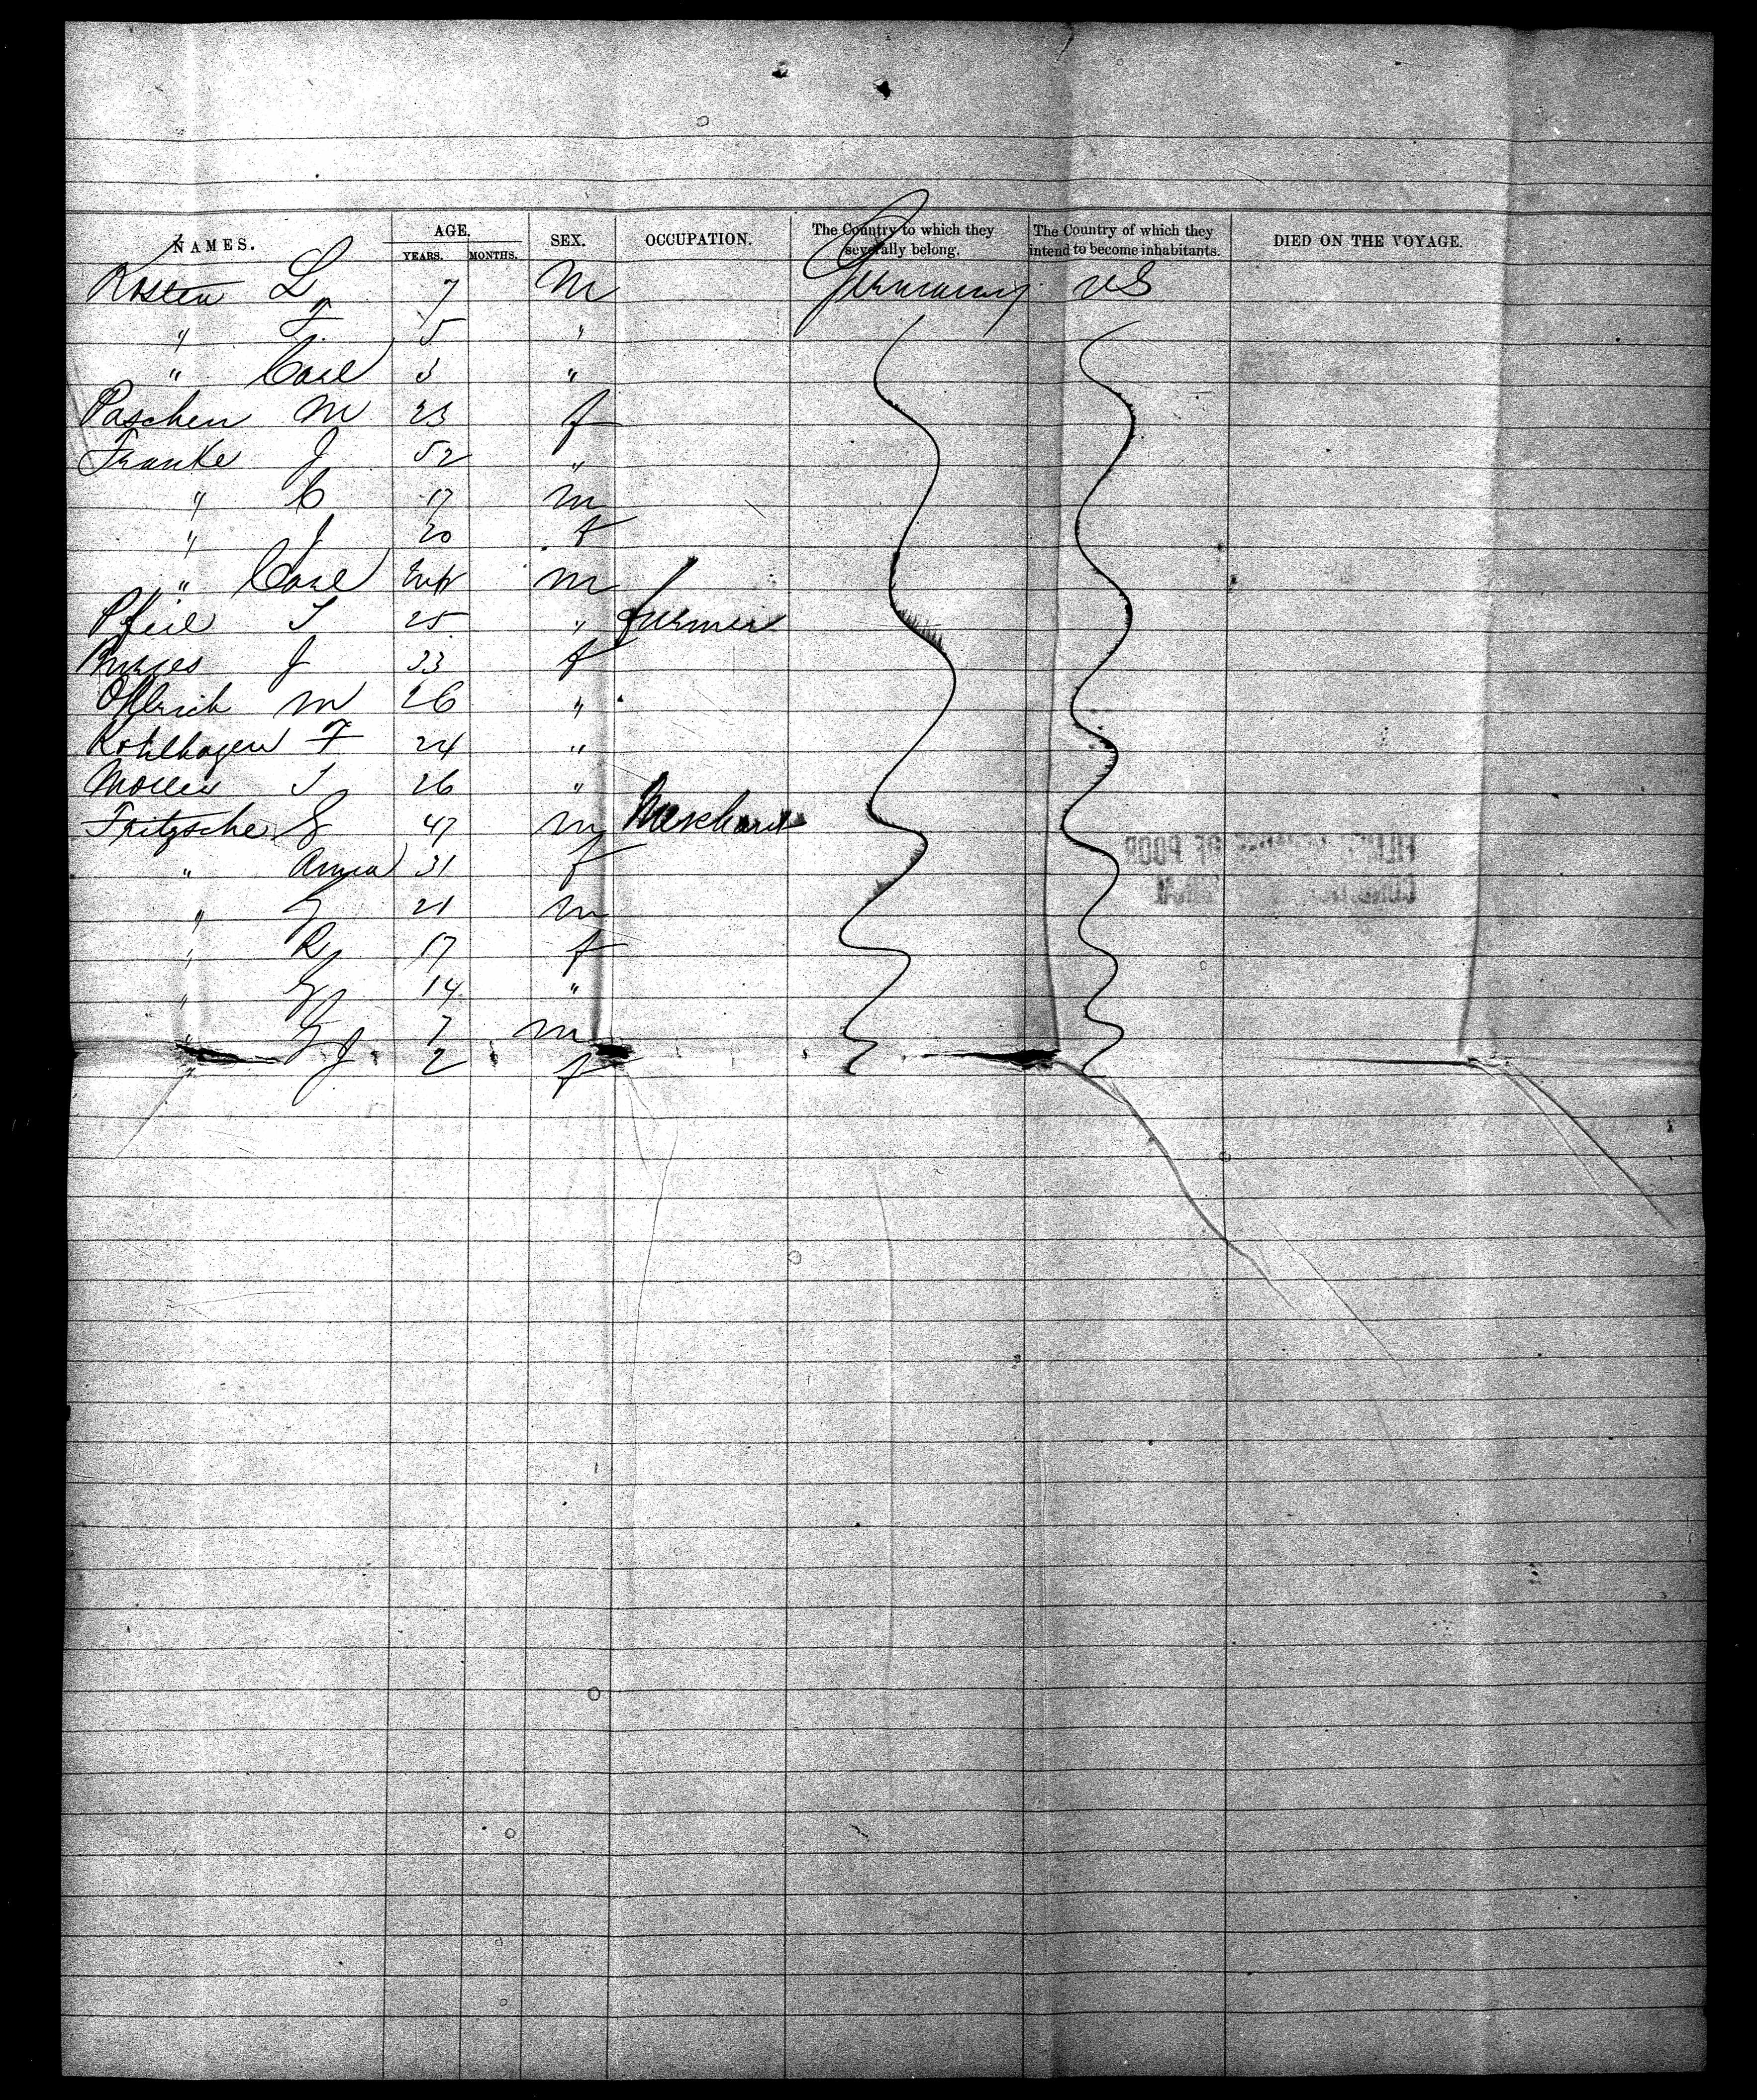 NAMES. AGE. SEX. OCCUPATION. The Country to which they severally belong. The Country of which they intend to become inhabitants. DIED ON THE VOYAGE.
YEARS. MONTHS.
Kosten L 7 M Germany US
" F 5 "
" Carl 3 "
Paschen M 23 f
Franke J 52 "
" C 17 m
" J 20 f
" Carl Inft m
Pfeil T 25 " farmer
J 33 f
Ollrich M 26 "
Kohlhagen F 24 "
Moller T 26 "
Fritzsche G 47 m Merchant
" Anna 31 f
" G 21 m
" R 17 f
" G 14 "
" G 7 m
" J 2 f
OF POOR